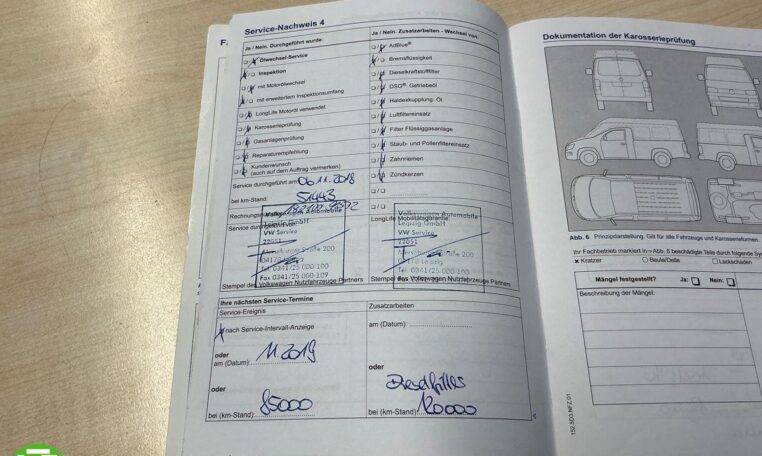 Service-Nachweis 4
Ja / Nein. Durchgeführt wurde:
Ölwechsel-Service
Inspektion
mit Motorölwechsel
mit erweitertem Inspektionsumfang
LongLife Motoröl verwendet
Karosserieprüfung
Gasanlagenprüfung
Reparaturempfehlung
Kundenwunsch
(auch auf dem Auftrag vermerken)
Service durchgeführt am: 06.11.2018
bei km-Stand: 51443
Service durchgeführt von:
Volkswagen Automobile
Leipzig GmbH
VW Service
22051
04178 Leipzig
Tel. 0341/25 000-100
Fax 0341/25 000-109
Stempel des Volkswagen Nutzfahrzeuge Partners
Ja / Nein. Zusatzarbeiten - Wechsel von:
AdBlue®
Bremsflüssigkeit
Dieselkraftstofffilter
DSG®: Getriebeöl
Haldexkupplung: Öl
Luftfiltereinsatz
Filter Flüssiggasanlage
Staub- und Pollenfiltereinsatz
Zahnriemen
Zündkerzen
LongLife Mobilitätsgarantie:
Volkswagen Automobile
Leipzig GmbH
VW Service
22051
Straße 200
04178 Leipzig
Tel. 0341/25 000-100
Fax 0341/25 000-109
Stempel des Volkswagen Nutzfahrzeuge Partners
Ihre nächsten Service-Termine
Service-Ereignis
nach Service-Intervall-Anzeige
oder
am (Datum): 11.2019
oder
bei (km-Stand): 85000
Zusatzarbeiten
am (Datum):
oder
bei (km-Stand): 120000
Dokumentation der Karosserieprüfung
Abb. 6 Prinzipdarstellung. Gilt für alle Fahrzeuge und Karosserieformen.
Ihr Fachbetrieb markiert in Abb. 6 beschädigte Teile durch folgende
Kratzer Beule/Delle Lackschaden
Mängel festgestellt? Ja: Nein:
Beschreibung der Mängel:
152.5D3.NFZ.01